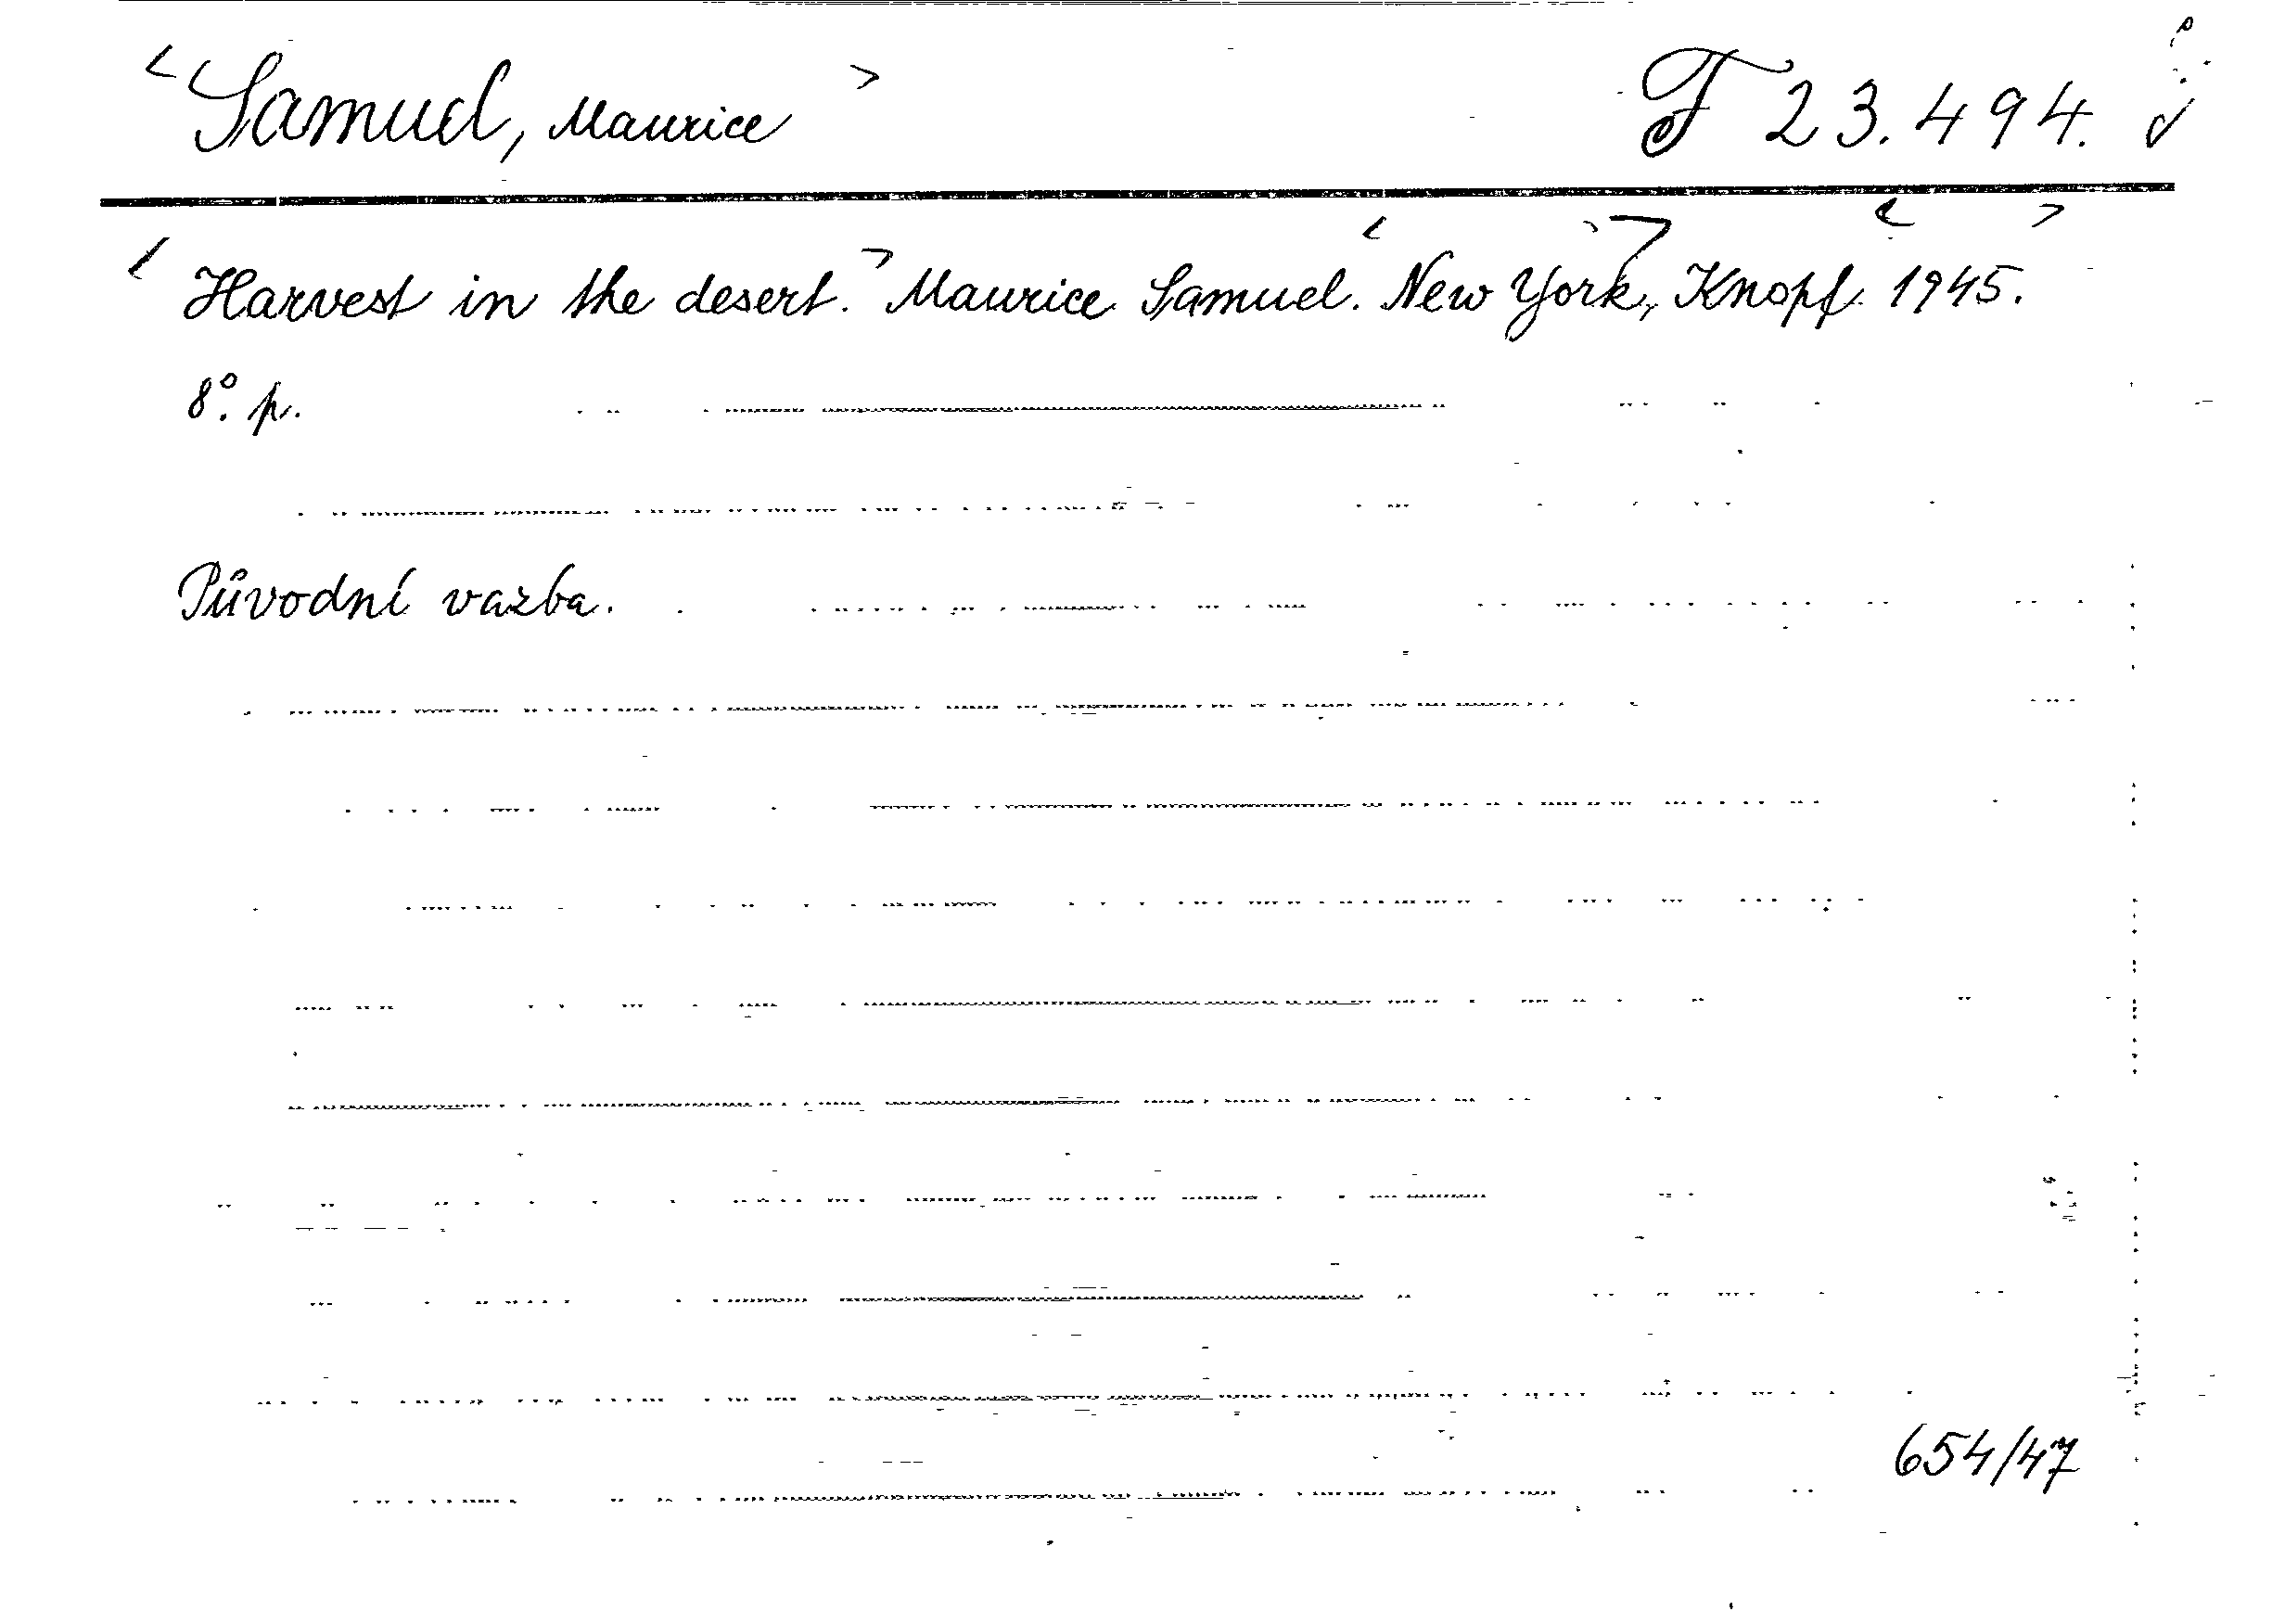 <Samuel, Maurice> F 23.494.
<Harvest in the desert.> Maurice Samuel. <New York,> Knopf. <1945.>
8°. p.
Původní vazba.
654/47